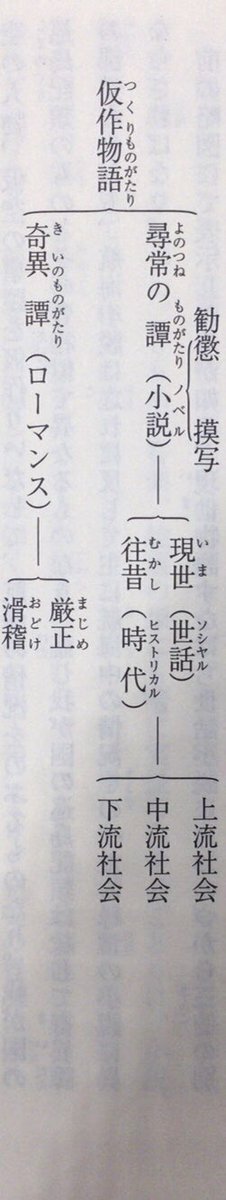 仮作物語
つくりものがたり
尋常の譚(小説)
よのつね ものがたり ノベル
勧懲
摸写
現世(世話)
いま ソシヤル
往昔(時代)
むかし ヒストリカル
上流社会
中流社会
下流社会
奇異譚(ローマンス)
きいのものがたり
厳正
まじめ
滑稽
おどけ